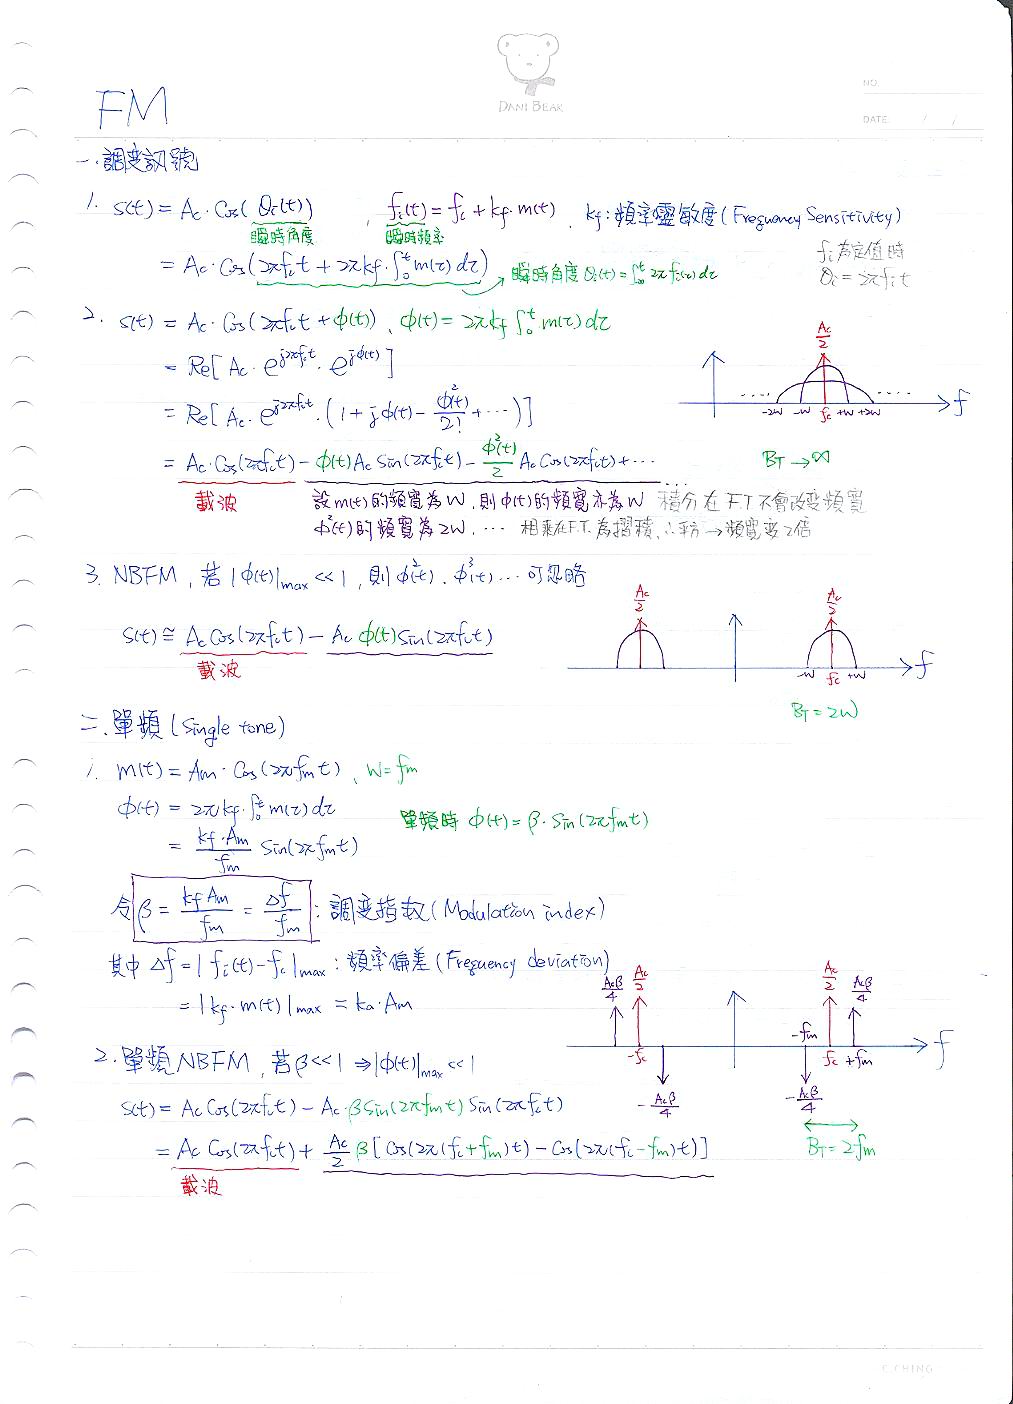 DANI BEAR
NO.
DATE: / /
FM
一.調变訊號
1. s(t) = Ac·Cos( θi(t) ) , fi(t) = fc + kf·m(t) , kf:頻率靈敏度(Frequency Sensitivity)
瞬時角度 瞬時頻率
= Ac·Cos(2πfct + 2πkf·∫₀ᵗ m(τ)dτ) → 瞬時角度 θi(t) = ∫₀ᵗ 2πfi(τ)dτ
fc為定值時
θi = 2πfct
2. s(t) = Ac·Cos(2πfct + ϕ(t)) , ϕ(t) = 2πkf ∫₀ᵗ m(τ)dτ
= Re[ Ac·e^{j2πfct}·e^{jϕ(t)} ]
= Re[ Ac·e^{j2πfct}·(1 + jϕ(t) - ϕ²(t)/2! + ···) ]
= Ac·Cos(2πfct) - ϕ(t)Ac Sin(2πfct) - ϕ²(t)/2 Ac Cos(2πfct) + ···
載波 設m(t)的頻寬為W, 則ϕ(t)的頻寬亦為W 積分在F.T.不會改变頻寬
ϕ²(t)的頻寬為2W, ··· 相乘在F.T.為摺積, ∴平方→頻寬变2倍
Ac/2
···· ····
-2W -W fc +W +2W f
BT → ∞
3. NBFM, 若 |ϕ(t)|max << 1, 則ϕ²(t)、ϕ³(t)···可忽略
s(t) ≅ Ac Cos(2πfct) - Ac ϕ(t)Sin(2πfct)
載波
Ac/2 Ac/2
-W fc +W f
BT = 2W
二.單頻(Single tone)
1. m(t) = Am·Cos(2πfmt) , W = fm
ϕ(t) = 2πkf·∫₀ᵗ m(τ)dτ
單頻時 ϕ(t) = β·Sin(2πfmt)
= kf·Am/fm Sin(2πfmt)
令 β = kf Am/fm = Δf/fm : 調变指数(Modulation index)
其中 Δf = | fi(t) - fc |max : 頻率偏差(Frequency deviation)
= | kf·m(t) |max = ka·Am
2. 單頻NBFM, 若β << 1 ⇒ |ϕ(t)|max << 1
s(t) = Ac Cos(2πfct) - Ac·βSin(2πfmt)Sin(2πfct)
= Ac Cos(2πfct) + Ac/2 β[Cos(2π(fc+fm)t) - Cos(2π(fc-fm)t)]
載波
Acβ/4 Ac/2 Ac/2 Acβ/4
-fc -fm fc +fm f
-Acβ/4 -Acβ/4
BT = 2fm
C.CHING